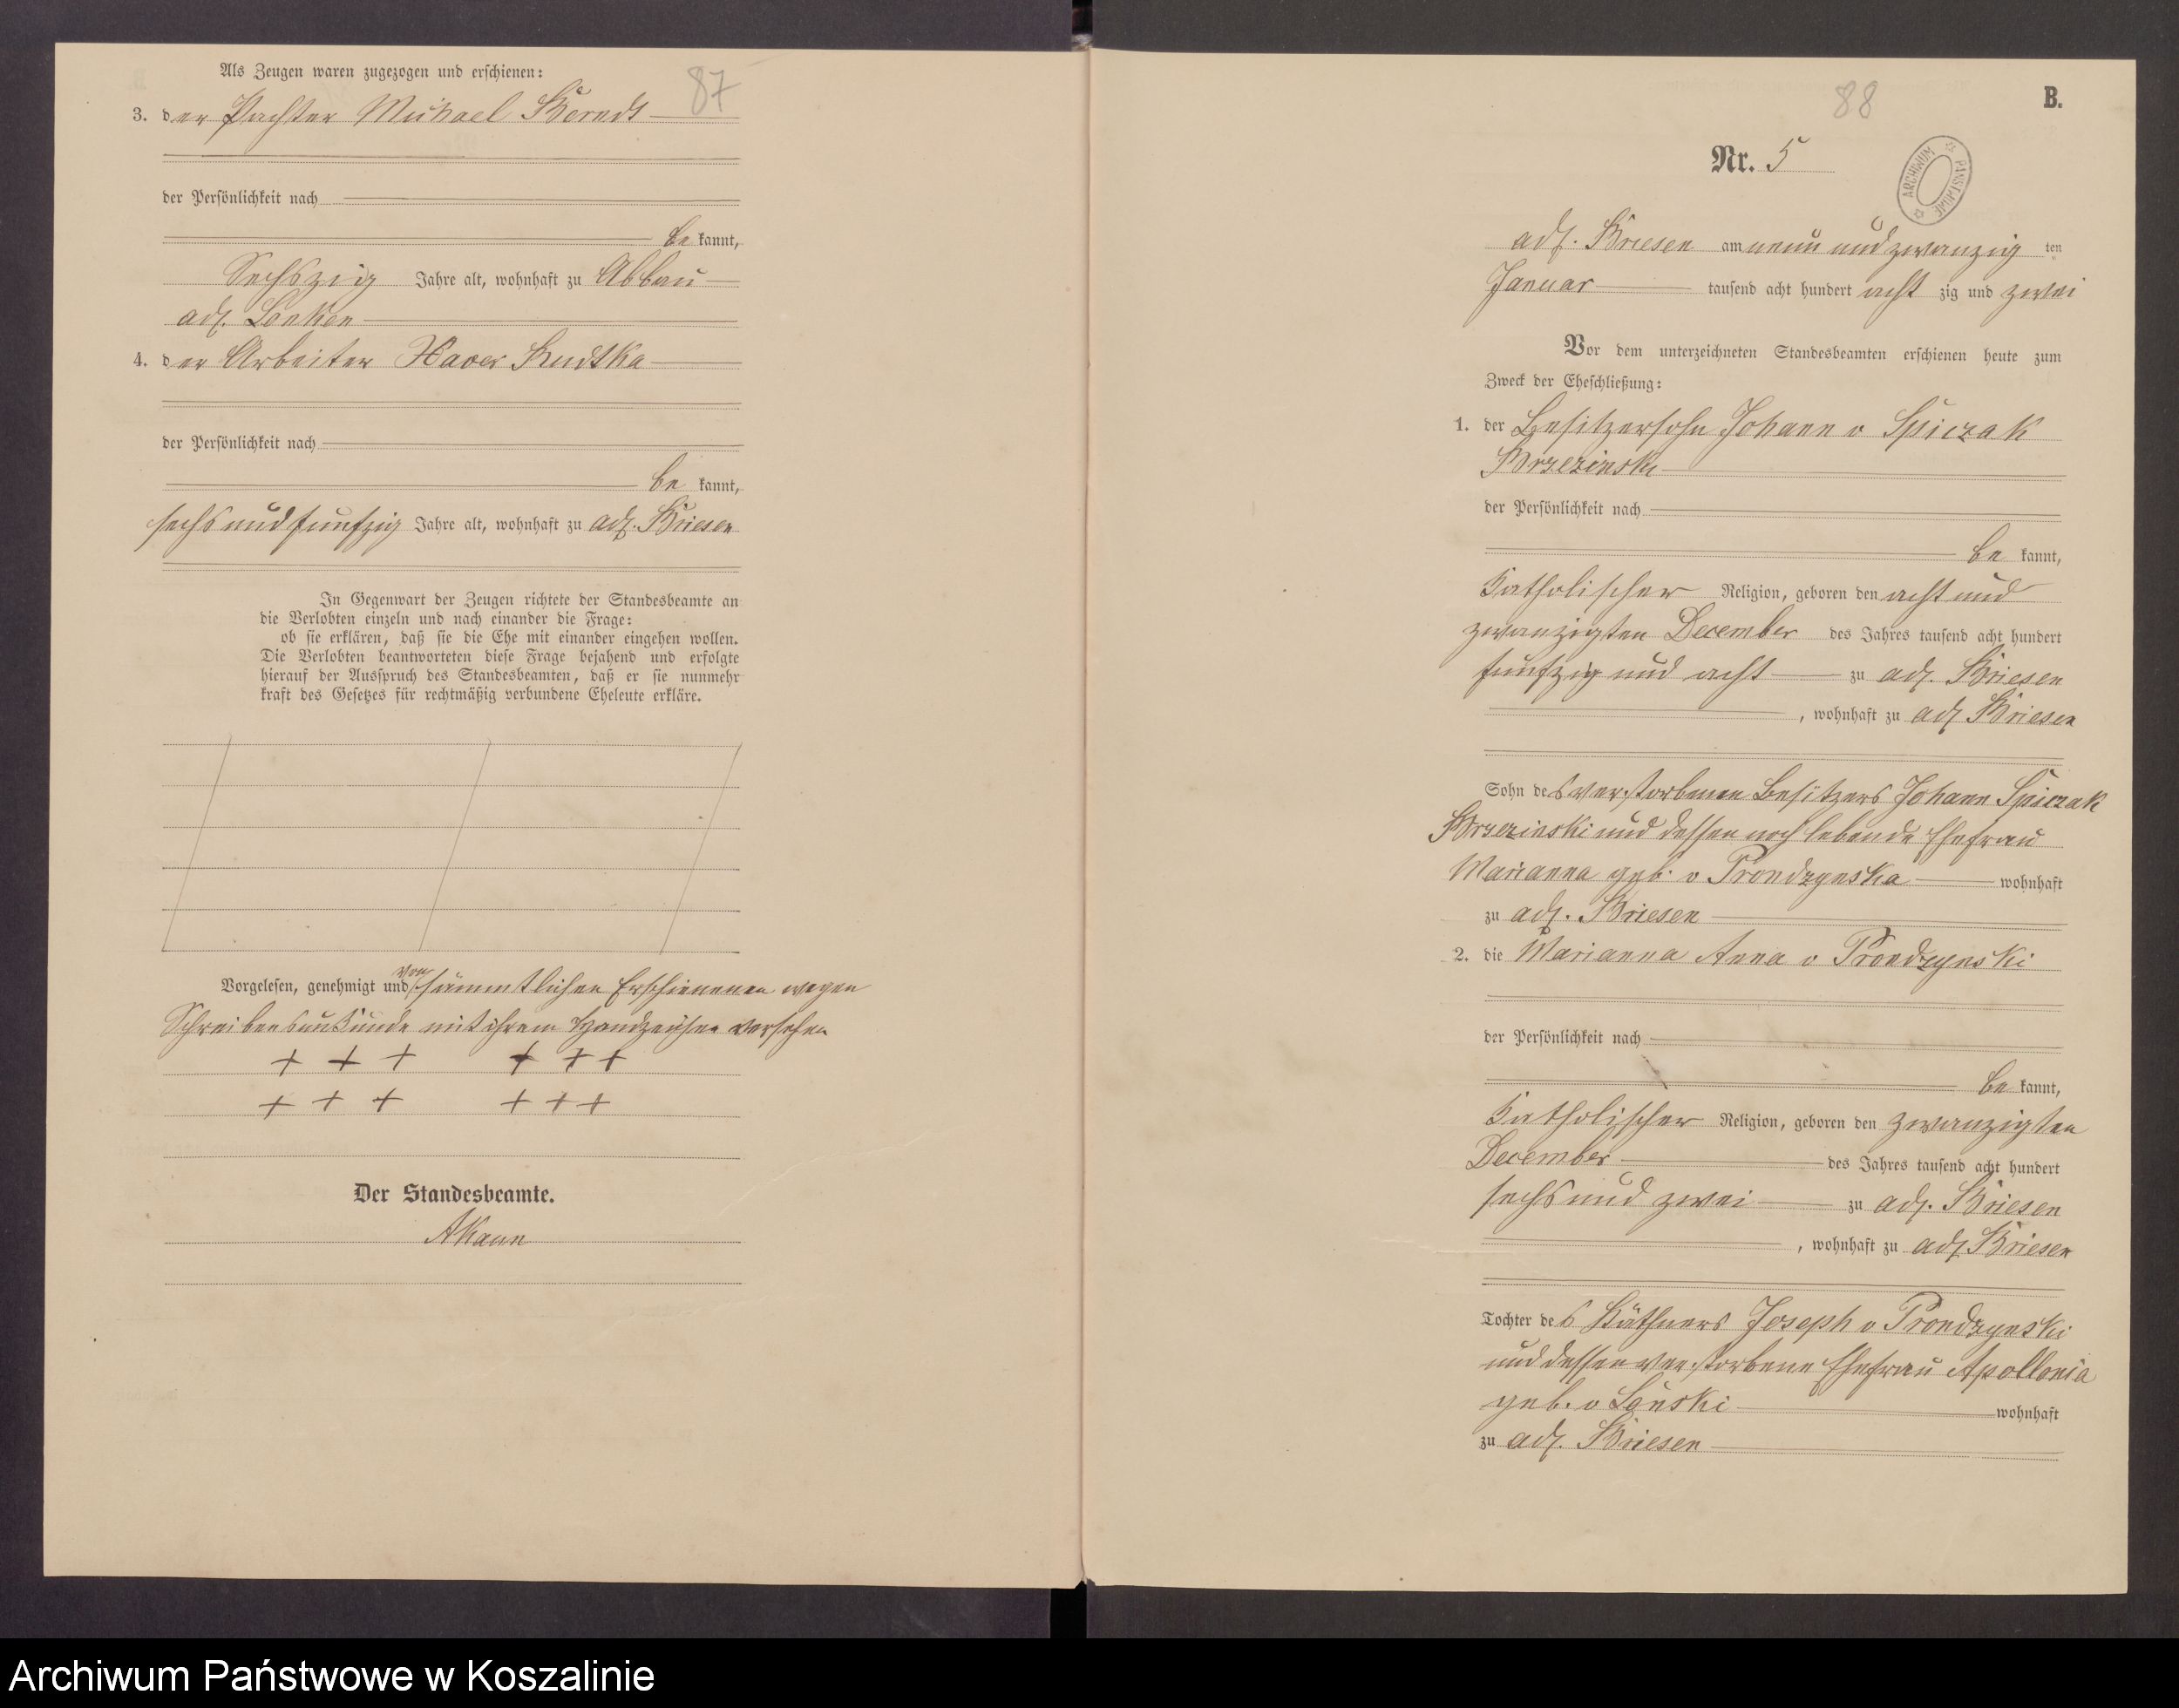 Als Zeugen waren zugezogen und erschienen:
87
3. der Pächter Michael Berndt
der Persönlichkeit nach
be kannt,
Sechszig Jahre alt, wohnhaft zu Abbau
adl. Lonken
4. der Arbeiter Xaver Rudtka
der Persönlichkeit nach
be kannt,
sechs und funfzig Jahre alt, wohnhaft zu adl. Briesen
In Gegenwart der Zeugen richtete der Standesbeamte an
die Verlobten einzeln und nach einander die Frage:
ob sie erklären, daß sie die Ehe mit einander eingehen wollen.
Die Verlobten beantworteten diese Frage bejahend und erfolgte
hierauf der Ausspruch des Standesbeamten, daß er sie nunmehr
kraft des Gesetzes für rechtmäßig verbundene Eheleute erkläre.
von
Vorgelesen, genehmigt und sämmtlichen Erschienenen wegen
Schreibensunkunde mit ihrem Handzeichen versehen
+ + + + + +
+ + + + + +
Der Standesbeamte.
AKaun
88
B.
Nr. 5
ARCHIWUM PAŃSTWOWE
adl. Briesen am neun und zwanzig ten
Januar tausend acht hundert acht zig und zwei
Vor dem unterzeichneten Standesbeamten erschienen heute zum
Zweck der Eheschließung:
1. der Besitzersohn Johann v Spiczak
Brzezinski
der Persönlichkeit nach
be kannt,
Katholischer Religion, geboren den acht und
zwanzigten December des Jahres tausend acht hundert
funfzig und acht zu adl. Briesen
, wohnhaft zu adl Briesen
Sohn des verstorbenen Besitzers Johann Spiczak
Brzezinski und dessen noch lebende Ehefrau
Marianna geb. v Prondzynska wohnhaft
zu adl. Briesen
2. die Marianna Anna v Prondzynski
der Persönlichkeit nach
be kannt,
Katholischer Religion, geboren den zwanzigten
December des Jahres tausend acht hundert
sechs und zwei zu adl. Briesen
, wohnhaft zu adl Briesen
Tochter des Käthners Joseph v Prondzynski
und dessen verstorbene Ehefrau Apollonia
geb. v Lonski wohnhaft
zu adl. Briesen
Archiwum Państwowe w Koszalinie